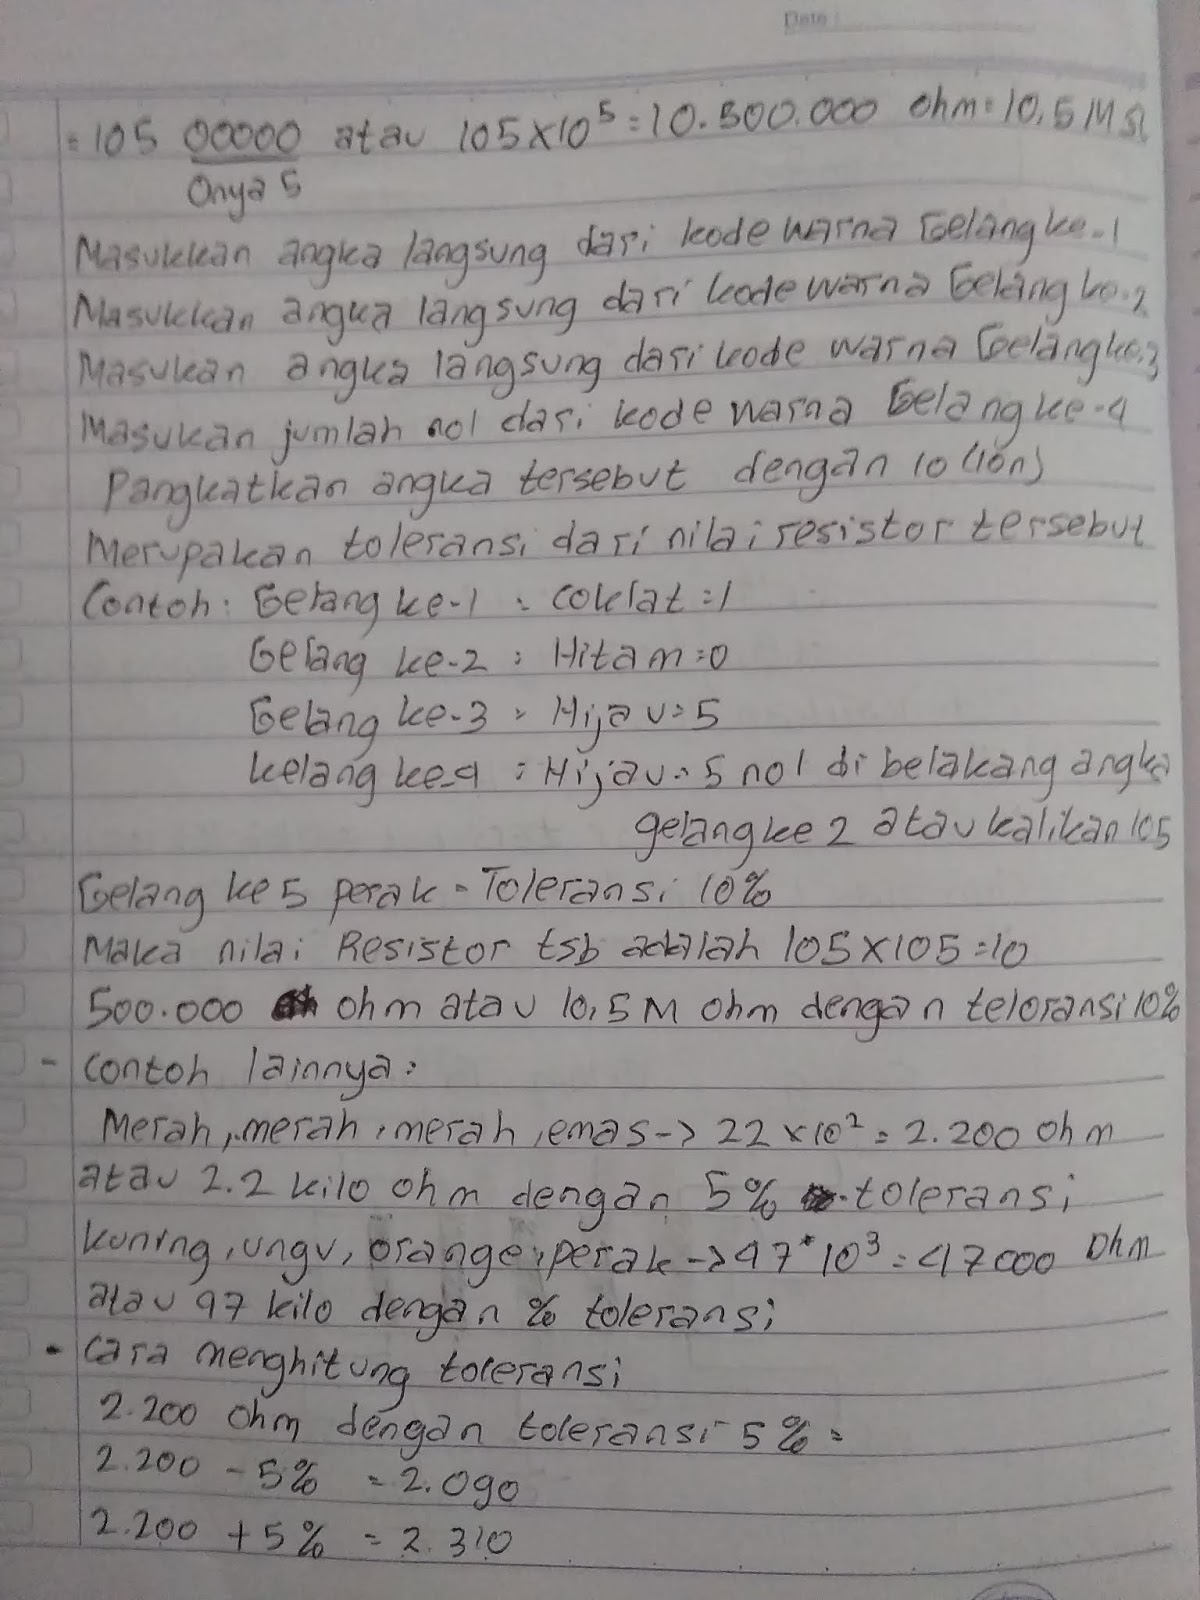 Date :
= 105 00000 atau 105 x 10⁵ = 10.500.000 ohm = 10,5 MΩ
0nya 5
Masukkan angka langsung dari kode warna Gelang ke-1
Masukkan angka langsung dari kode warna Gelang ke-2
Masukan angka langsung dari kode warna Gelang ke-3
Masukan jumlah nol dari kode warna Gelang ke-4
Pangkatkan angka tersebut dengan 10 (10n)
Merupakan toleransi dari nilai resistor tersebut
Contoh : Gelang ke-1 = coklat = 1
Gelang ke-2 = Hitam = 0
Gelang ke-3 = Hijau = 5
kelang ke-4 = Hijau = 5 nol di belakang angka
gelang ke 2 atau kalikan 105
Gelang ke 5 perak = Toleransi 10%
Maka nilai Resistor tsb adalah 105 x 105 = 10
500.000 ohm atau 10,5 M ohm dengan teloransi 10%
- Contoh lainnya :
Merah, merah, merah, emas -> 22 x 10² = 2.200 Ohm
atau 2.2 kilo ohm dengan 5% toleransi
kuning, ungu, orange, perak -> 47 * 10³ = 47000 Ohm
atau 47 kilo dengan % toleransi
- Cara menghitung toleransi
2.200 Ohm dengan toleransi 5% =
2.200 - 5% = 2.090
2.200 + 5% = 2.310